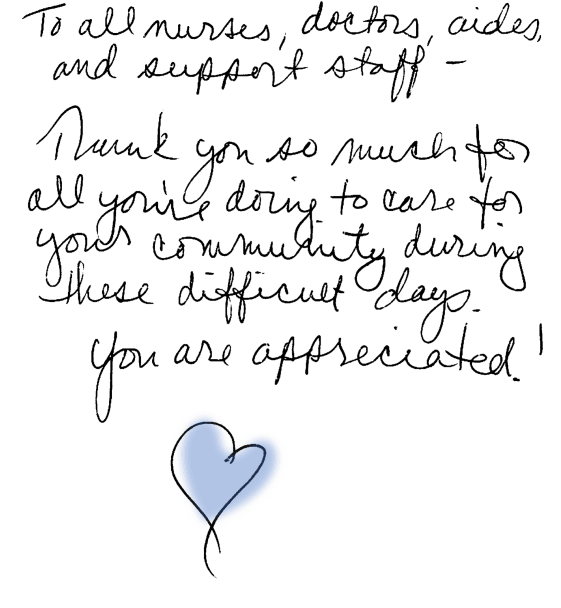 To all nurses, doctors, aides,
and support staff –
Thank you so much for
all you're doing to care for
your community during
these difficult days.
You are appreciated!